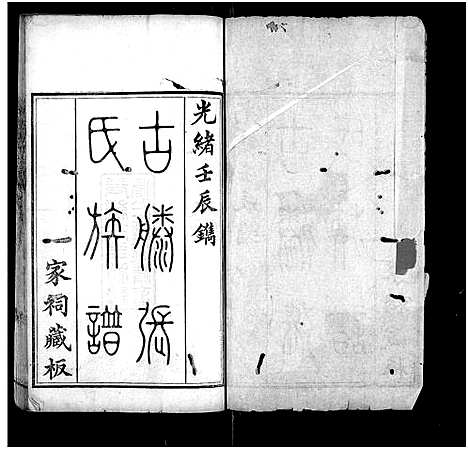 光緒壬辰鐫
古滕張
氏族譜
家祠藏板